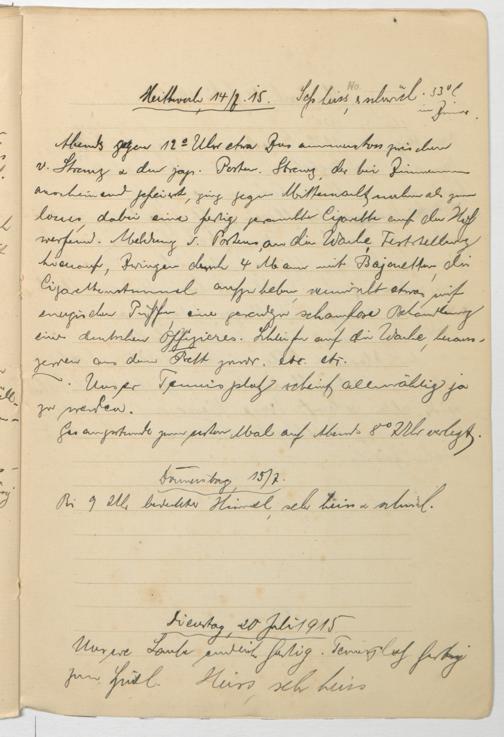 Mittwoch, 14/7. 15. Sehr heiss, & schwül. 33° C
im Zimmer.
Abends gegen 12° Uhr etwa Zusammenstoss zwischen
v. Strenz & dem jap. Posten. Strenz, der bei Zimmermann
anscheinend gefeiert, ging gegen Mitternacht nochmals zum
, dabei eine fertig gerauchte Cigarette auf den Hof
werfend. Meldung d. Postens an die Wache, Feststellung
hierauf, Zwingen durch 4 Mann mit Bajonetten die
Cigarettenstummel aufzuheben, etwas mit
energischen Püffen eine geradezu schamlose Behandlung
eines deutschen Offizieres. Schleifen auf die Wache, heraus-
zerren aus dem Bett etc. etc.
Unser Tennisplatz scheint allmählig ja
zu werden.
Gesangstunde zum ersten Mal auf Abends 8°° Uhr verlegt.
Donnerstag, 15/7.
Bis 9 Uhr bedeckter Himmel, sehr heiss & schwül.
Dienstag, 20 Juli 1915
Unsere Laube endlich fertig. Tennisplatz fertig
zum Spiel. Heiss, sehr heiss